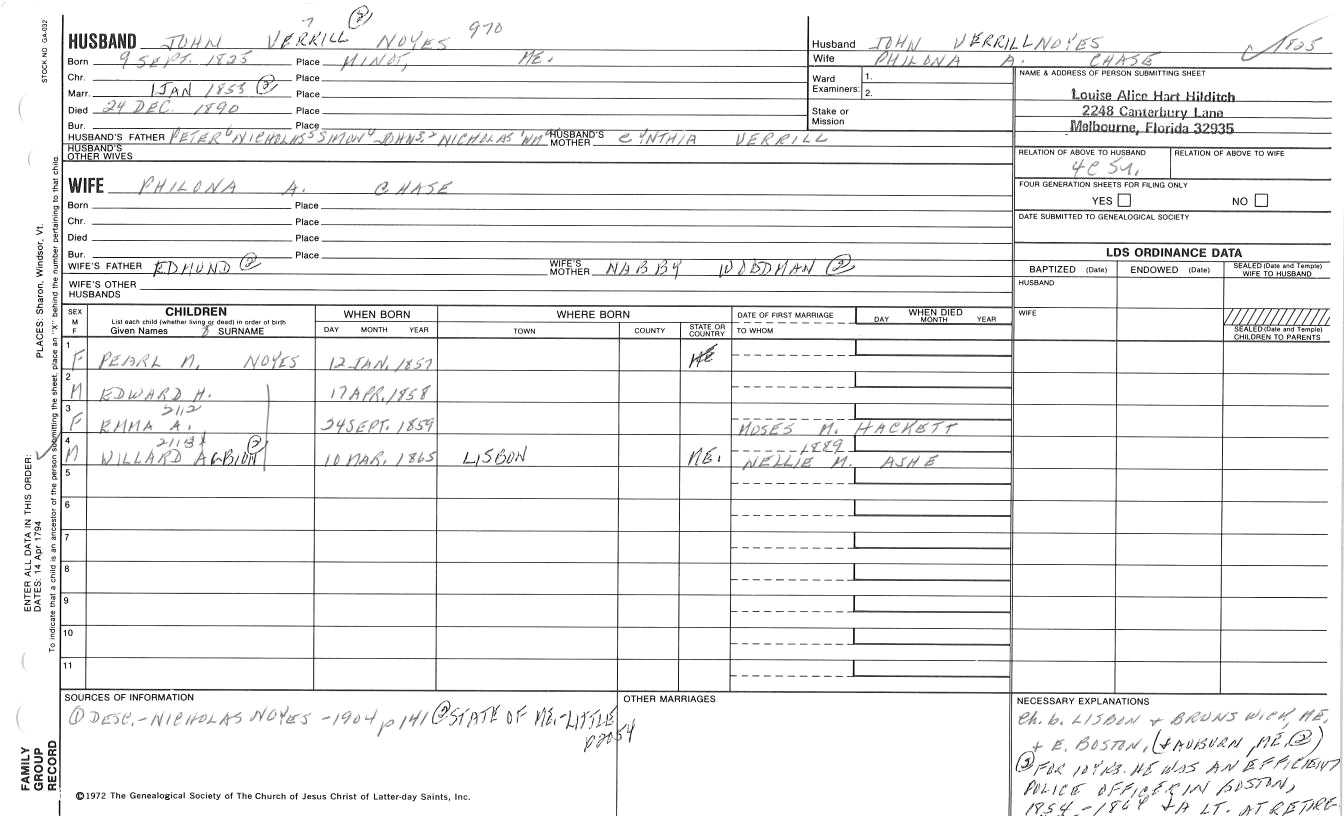 STOCK NO. GA-032
7 ②
HUSBAND JOHN VERRILL NOYES 970
Born 9 SEPT. 1825 Place MINOT, ME.
Chr. Place
Marr. 1 JAN 1853 ② Place
Died 24 DEC. 1890 Place
Bur. Place
HUSBAND'S FATHER PETER NICHOLAS SIMON JOHN NICHOLAS WM HUSBAND'S MOTHER CYNTHIA VERRILL
HUSBAND'S OTHER WIVES
Husband JOHN VERRILL NOYES 1825
Wife PHILONA A. CHASE
Ward Examiners: 1.
2.
Stake or Mission
NAME & ADDRESS OF PERSON SUBMITTING SHEET
Louise Alice Hart Hilditch
2248 Canterbury Lane
Melbourne, Florida 32935
RELATION OF ABOVE TO HUSBAND RELATION OF ABOVE TO WIFE
4C 5r.
FOUR GENERATION SHEETS FOR FILING ONLY
YES NO
DATE SUBMITTED TO GENEALOGICAL SOCIETY
WIFE PHILONA A. CHASE
Born Place
Chr. Place
Died Place
Bur. Place
WIFE'S FATHER EDMUND ② WIFE'S MOTHER NABBY WOODMAN ②
WIFE'S OTHER HUSBANDS
LDS ORDINANCE DATA
BAPTIZED (Date) ENDOWED (Date) SEALED (Date and Temple) WIFE TO HUSBAND
HUSBAND
WIFE
SEALED (Date and Temple) CHILDREN TO PARENTS
SEX M F CHILDREN WHEN BORN WHERE BORN DATE OF FIRST MARRIAGE WHEN DIED
List each child (whether living or dead) in order of birth
Given Names SURNAME DAY MONTH YEAR TOWN COUNTY STATE OR COUNTRY TO WHOM DAY MONTH YEAR
1 F PEARL M. NOYES 12 JAN. 1857 ME
2 M EDWARD H. 17 APR. 1858
2112
3 F EMMA A. 24 SEPT. 1859 MOSES M. HACKETT
②
4 M WILLARD ALBION 10 MAR. 1865 LISBON ME. 1889 NELLIE M. ASHE
5
6
7
8
9
10
11
SOURCES OF INFORMATION
① DESC.-NICHOLAS NOYES -1904 p 141 ② STATE OF ME.-LITTLE
p2054
OTHER MARRIAGES
NECESSARY EXPLANATIONS
Ch. b. LISBON & BRUNSWICK, ME.
& E. BOSTON, (& AUBURN, ME. ②)
② FOR 10 YRS. HE WAS AN EFFICIENT
POLICE OFFICER IN BOSTON,
1854-1864 & A LT. AT RETIRE-
©1972 The Genealogical Society of The Church of Jesus Christ of Latter-day Saints, Inc.
PLACES: Sharon, Windsor, Vt.
ENTER ALL DATA IN THIS ORDER:
DATES: 14 Apr 1794
To indicate that a child is an ancestor of the person submitting the sheet, place an "X" behind the number pertaining to that child.
FAMILY
GROUP
RECORD